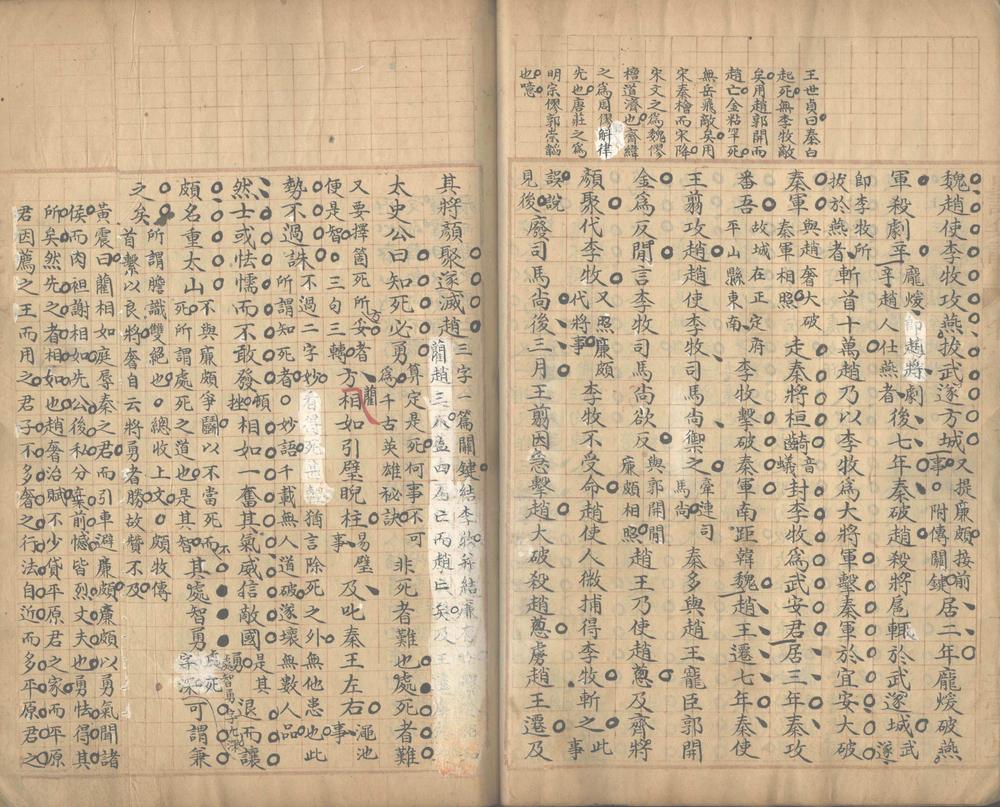 王世貞曰秦白
起死無李牧敵
矣用趙郭開而
趙亡金粘罕死
無岳飛敵矣用
宋秦檜而宋降
宋文之爲魏僇
檀道濟也齊緯
之爲周僇斛律
先也唐莊之爲
明宗僇郭崇韜
也噫
魏趙使李牧攻燕拔武遂方城又提廉頗接前事附傳關鍵居二年龐煖破燕
軍殺劇辛龐煖即趙將劇辛趙人仕燕者後七年秦破趙殺將扈輒於武遂城武遂
即李牧所拔於燕者斬首十萬趙乃以李牧爲大將軍擊秦軍於宜安大破
秦軍與趙奢大破秦軍相照走秦將桓齮音蟻封李牧爲武安君居三年秦攻
番吾故城在正定府平山縣東南李牧擊破秦軍南距韓魏趙王遷七年秦使
王翦攻趙趙使李牧司馬尚禦之牽連司馬尚秦多與趙王寵臣郭開
金爲反間言李牧司馬尚欲反與郭開間廉頗相照趙王乃使趙蔥及齊將
顏聚代李牧又照廉頗代將事李牧不受命趙使人微捕得李牧斬之此事
誤說見後廢司馬尚後三月王翦因急擊趙大破殺趙蔥虜趙王遷及
其將顏聚遂滅趙三字一篇關鍵結李牧并結廉
太史公曰知死必勇算定是死何事不可爲千古英雄祕訣非死者難也處死者難
又要擇箇死所方安者便是智三句三轉方藺相如引璧睨柱易璧事及叱秦王左右澠池事
勢不過誅不過二字妙看得死無猶言除死之外無他患也此所謂知死者妙語千載無人道破遂壞無數人品
然士或怯懦而不敢發頓挫相如一奮其氣威信敵國是其勇退而讓
頗名重太山不與廉頗爭鬭以不當死而不死所謂處死之道也是其智其處智勇可謂兼
之矣所謂膽識雙絕也總收上文頗牧傳首繫以良將奢自云將勇者勝故贊不及
黃震曰藺相如庭辱秦之君而引車避廉頗廉頗以勇氣聞諸
侯而肉袒謝相如先公後私分棄前憾皆烈丈夫也勇怯得其
所矣然先之者相如也趙奢治賦不少貸平原君之家而平原
君因薦之王而用之君子不多奢之行法自近而多平原君之